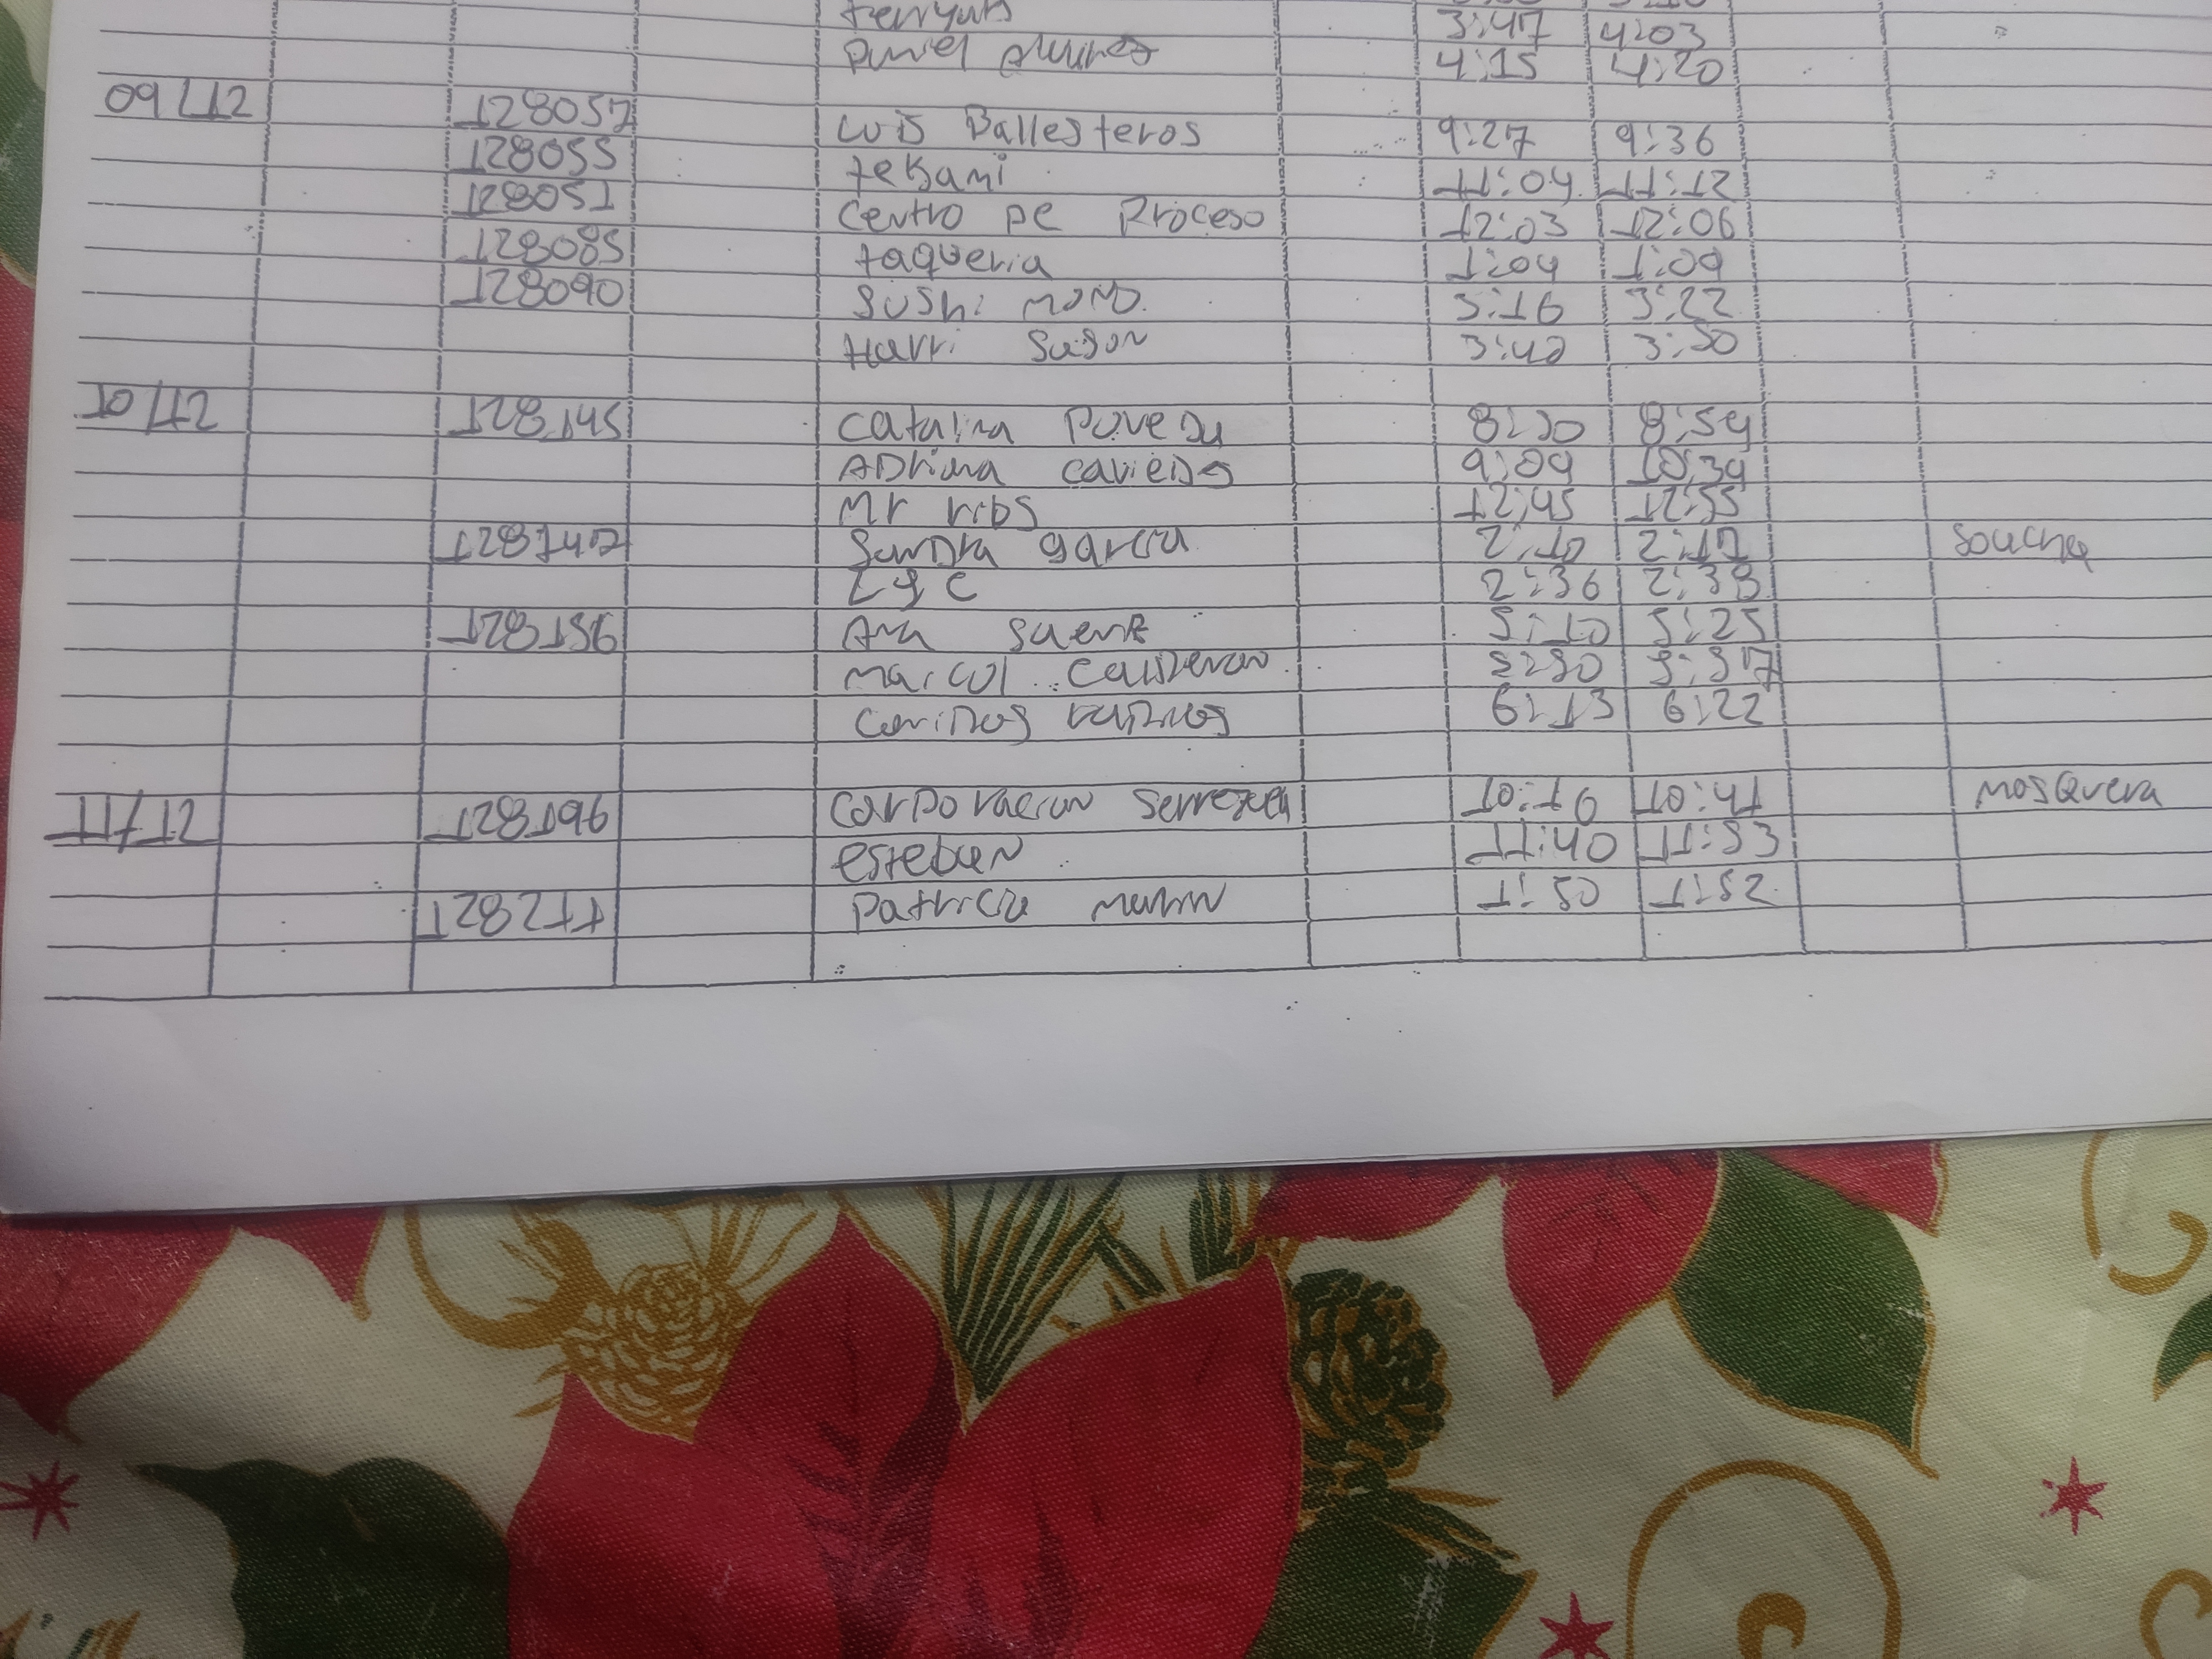 3:47 4:03
4:15 4:20
09/12 128057 Luis Ballesteros 9:27 9:36
128055 tekami 11:04 11:12
128051 Centro De Proceso 12:03 12:06
128085 taqueria 1:04 1:09
128090 Sushi momo 3:16 3:22
Harri Sason 3:42 3:50
10/12 128145 Catalina Poveda 8:50 8:54
ADriana cavieDes 9:09 10:39
Mr ribs 12:45 12:55
128147 SanDra garcia 2:10 2:17
LyC 2:36 2:38
128156 Ana 5:10 5:25
CalDeron 5:50 5:57
6:13 6:22
11/12 128196 Corporacion Serrezuela 10:16 10:41 Mosquera
esteban 11:40 11:53
128211 Patricia 1:50 1:52